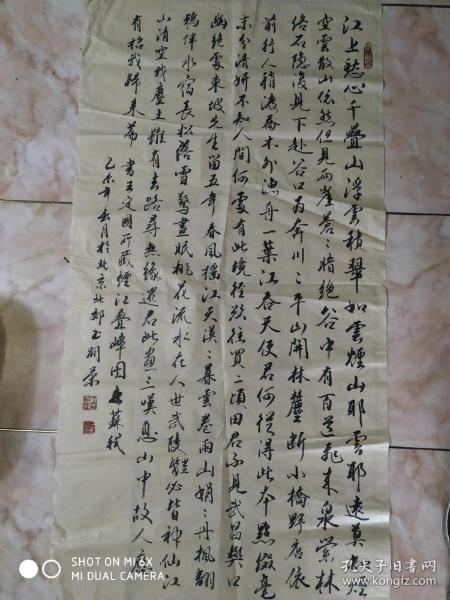 江上愁心千疊山浮雲積翠如雲煙山耶雲耶遠莫知煙
空雲散山依然但見兩崖蒼〻暗絕谷中有百道飛來泉縈林
絡石隱復見下赴谷口為奔川〻平山開林麓斷小橋野店依
前行人稍渡喬木外漁舟一葉江吞天使君何從得此本點綴毫
末分清妍不知人間何處有此境徑欲往買二頃田君不見武昌樊口
幽絕處東坡先生留五年春風搖江天漠〻暮雲卷雨山娟〻丹楓翻
鴉伴水宿長松落雪驚晝眠桃花流水在人世武陵豈必皆神仙江
山清空我塵土雖有去路尋無緣還君此畫三嘆息山中故人應
有招我歸來篇 書王定國所藏煙江疊嶂圖 蘇軾
乙未年月於北京北郊
SHOT ON MI 6X
MI DUAL CAMERA
孔夫子旧书网
kongfz.com